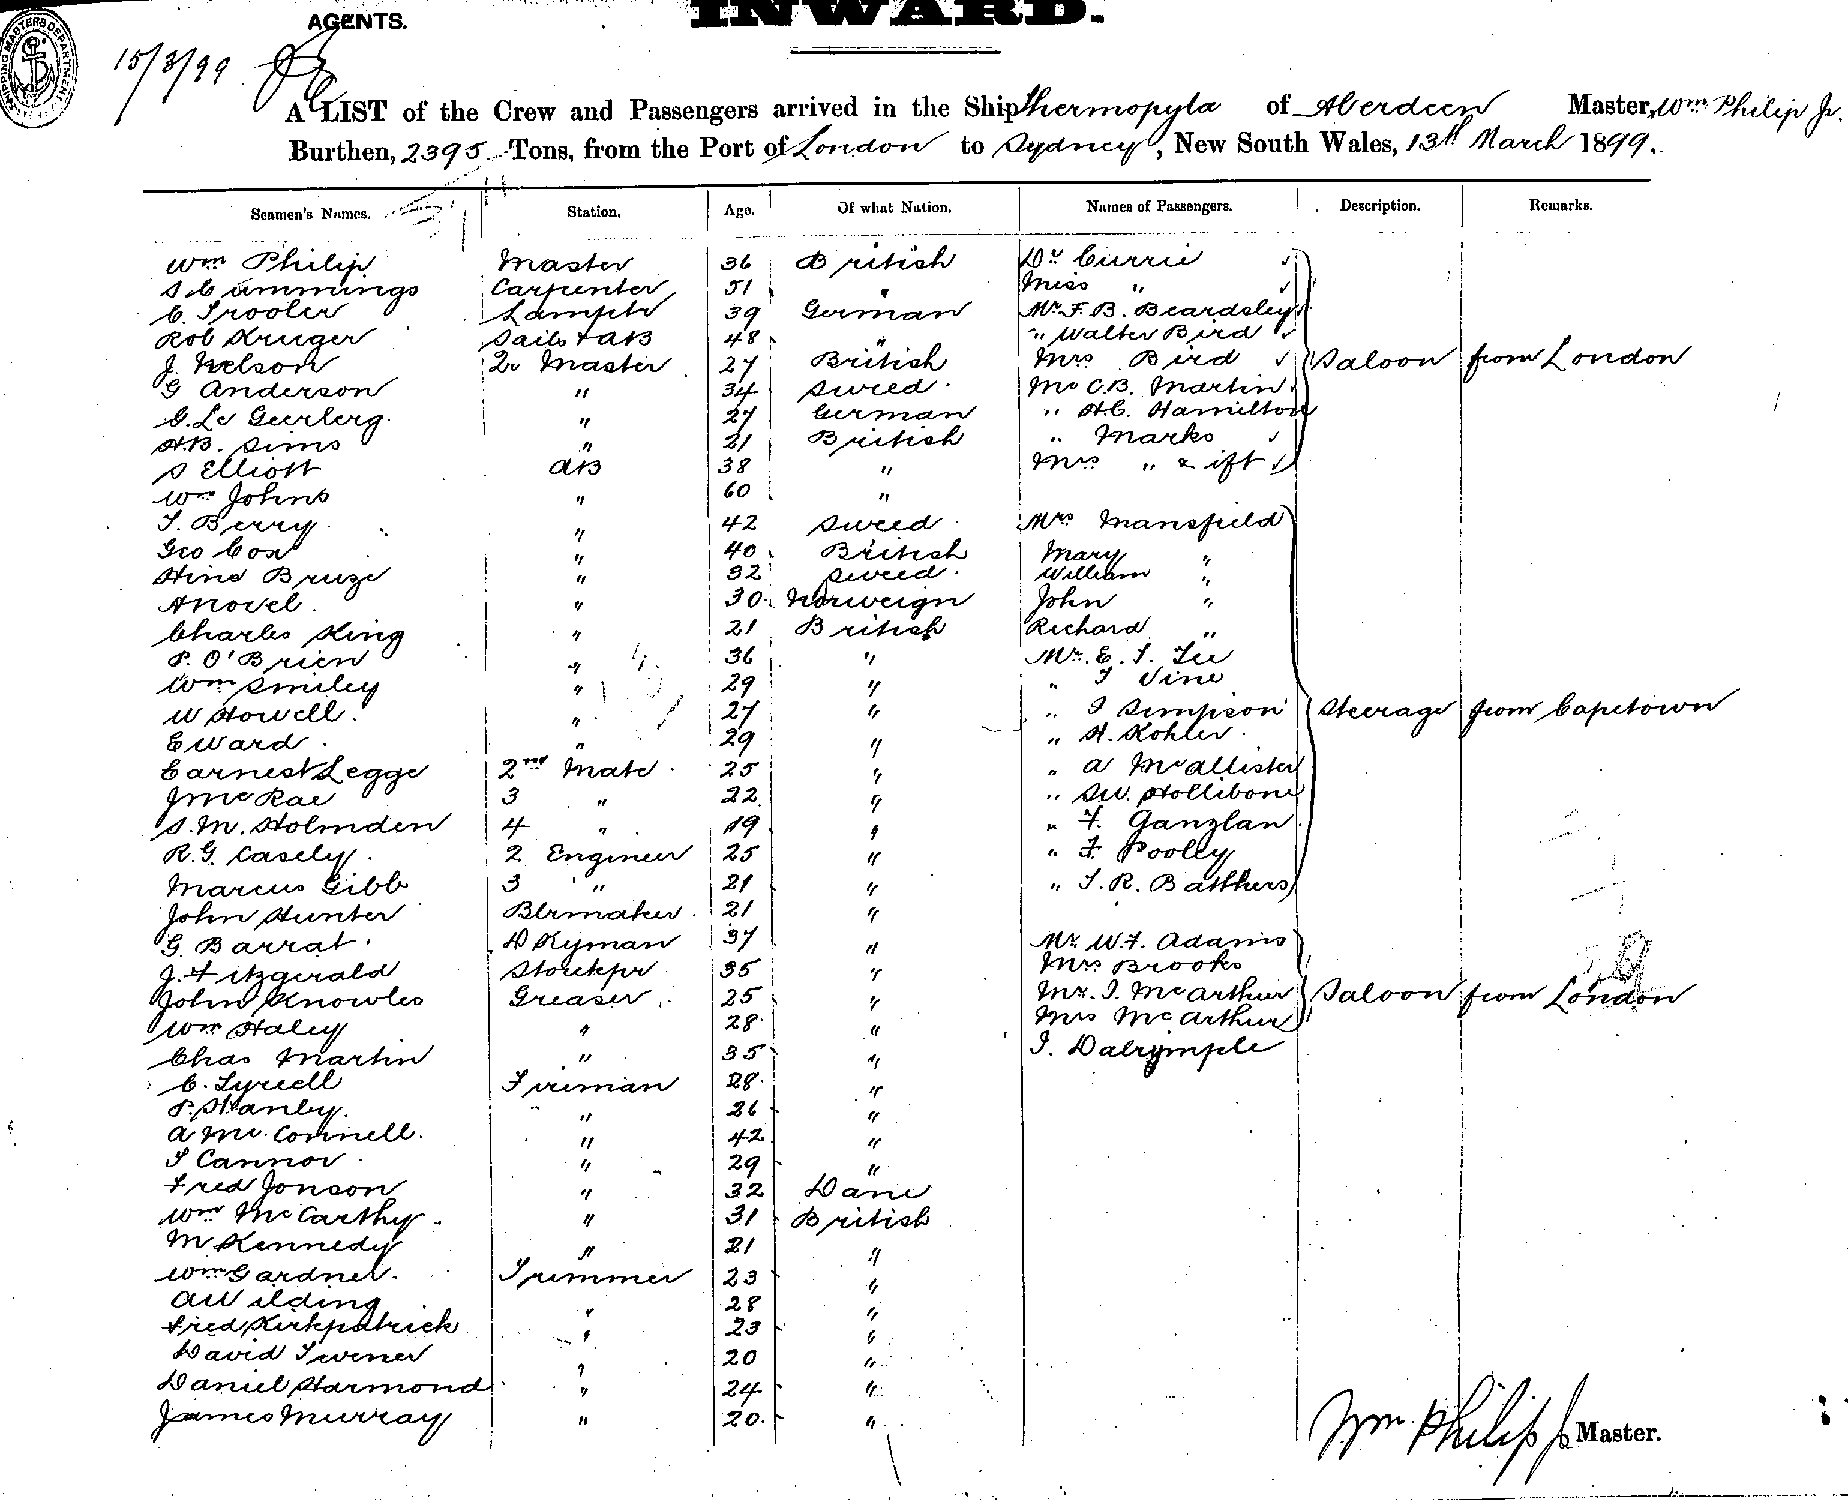 SHIPPING MASTERS DEPARTMENT
AGENTS.
INWARD.
15/3/99
A LIST of the Crew and Passengers arrived in the Ship Thermopyla of Aberdeen Master, Wm Philip Jr.
Burthen, 2395 Tons, from the Port of London to Sydney, New South Wales, 13th March 1899.
Seamen's Names. Station. Age. Of what Nation. Names of Passengers. Description. Remarks.
Wm Philip Master 36 British Dr Currie ✓
S Cummings Carpenter 51 " Miss " ✓
C. Trooler Lamptr 39 German Mr F. B. Beardsley
Rob Kruger Sails & AB 48 " " Walter Bird ✓
J. Nelson Qr Master 27 British Mrs Bird ✓ Saloon from London
G Anderson " 34 Sweed Mr C.B. Martin
G. Le Geerlerg. " 27 German " H.C. Hamilton
H.B. Sims " 21 British " Marks ✓
S Elliott AB 38 " Mrs " & ift ✓
Wm Johns " 60 "
T. Berry " 42 Sweed Mrs Mansfield
Geo Cox " 40 British Mary "
Hind Bruze " 32 Sweed William "
A Novel " 30 Norweign John "
Charles King " 21 British Richard "
P. O'Brien " 36 " Mr. E. T. Lee
Wm Smiley " 29 " " T Vine
W Howell " 27 " " J Simpson Steerage from Capetown
E Ward " 29 " " H. Kohler
Earnest Legge 2nd Mate 25 " " A McAllister
J McRae 3 " 22 " " S.W. Hollibone
S. M. Holmden 4 " 19 " " F. Ganzlan
R. G. Casely 2 Engineer 25 " " F. Pooley
Marcus Gibb 3 " 21 " " T. R. Batthers
John Hunter Blrmaker 21 "
G. Barrat D Kyman 37 " Mr W.F. Adams
J. Fitzgerald Storekpr 35 " Mrs Brooks
John Knowles Greaser 25 " Mr. J. McArthur Saloon from London
Wm Haley " 28 " Mrs McArthur
Chas Martin " 35 " J. Dalrymple
C. Tyrell Fireman 28 "
P. Stanby " 26 "
A McConnell. " 42 "
T Cannor " 29 "
Fred Jonson " 32 Dane
Wm McCarthy " 31 British
M Kennedy " 21 "
Wm Gardner Trimmer 23 "
A Wilding " 28 "
Fred Kirkpatrick " 23 "
David Turner " 20 "
Daniel Harmond " 24 "
James Murray " 20 "
Wm Philip Jr Master.